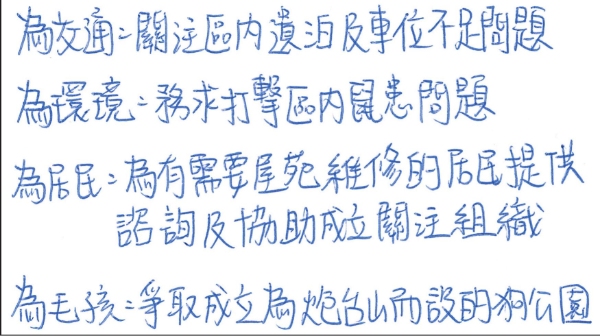 為交通：關注區內違泊及車位不足問題
為環境：務求打擊區內鼠患問題
為居民：為有需要屋苑維修的居民提供
諮詢及協助成立關注組織
為毛孩：爭取成立為炮台山而設的狗公園